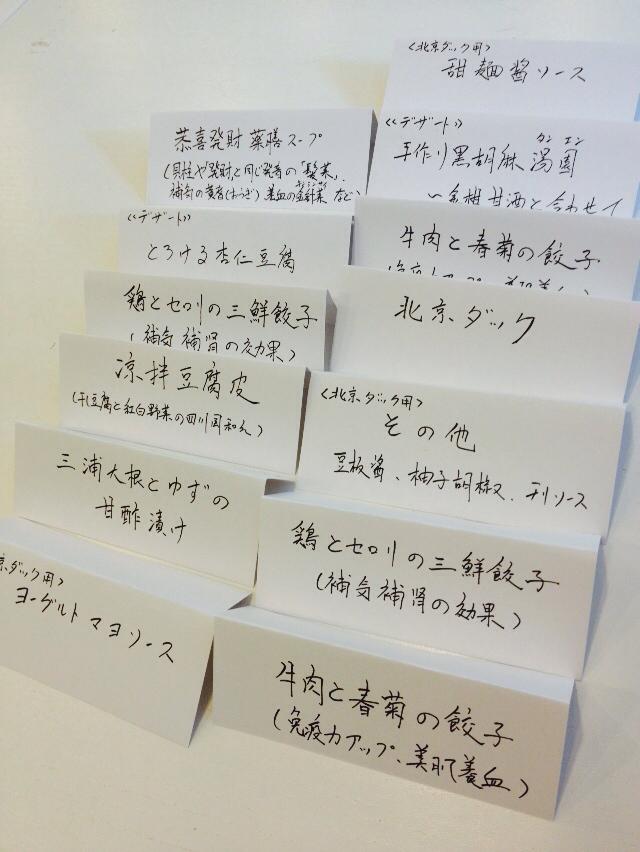 恭喜發財 薬膳スープ
(貝柱や「發財」と同じ発音の「髪菜」、
補気の黄耆(おうぎ) 養血の金針菜 など)
<<デザート>>
とろける杏仁豆腐
鶏とセロリの三鮮餃子
(補気補腎の効果)
凉拌豆腐皮
(干し豆腐と紅白野菜の四川風和え)
三浦大根とゆずの
甘酢漬け
京ダック用)
ヨーグルトマヨソース
<北京ダック用>
甜麺醤ソース
<<デザート>>
タン エン
手作り黒胡麻湯圓
〜金柑甘酒と合わせて
牛肉と春菊の餃子
北京ダック
<北京ダック用>
その他
豆板醤、柚子胡椒、ソース
鶏とセロリの三鮮餃子
(補気補腎の効果)
牛肉と春菊の餃子
(免疫力アップ、美肌養血)